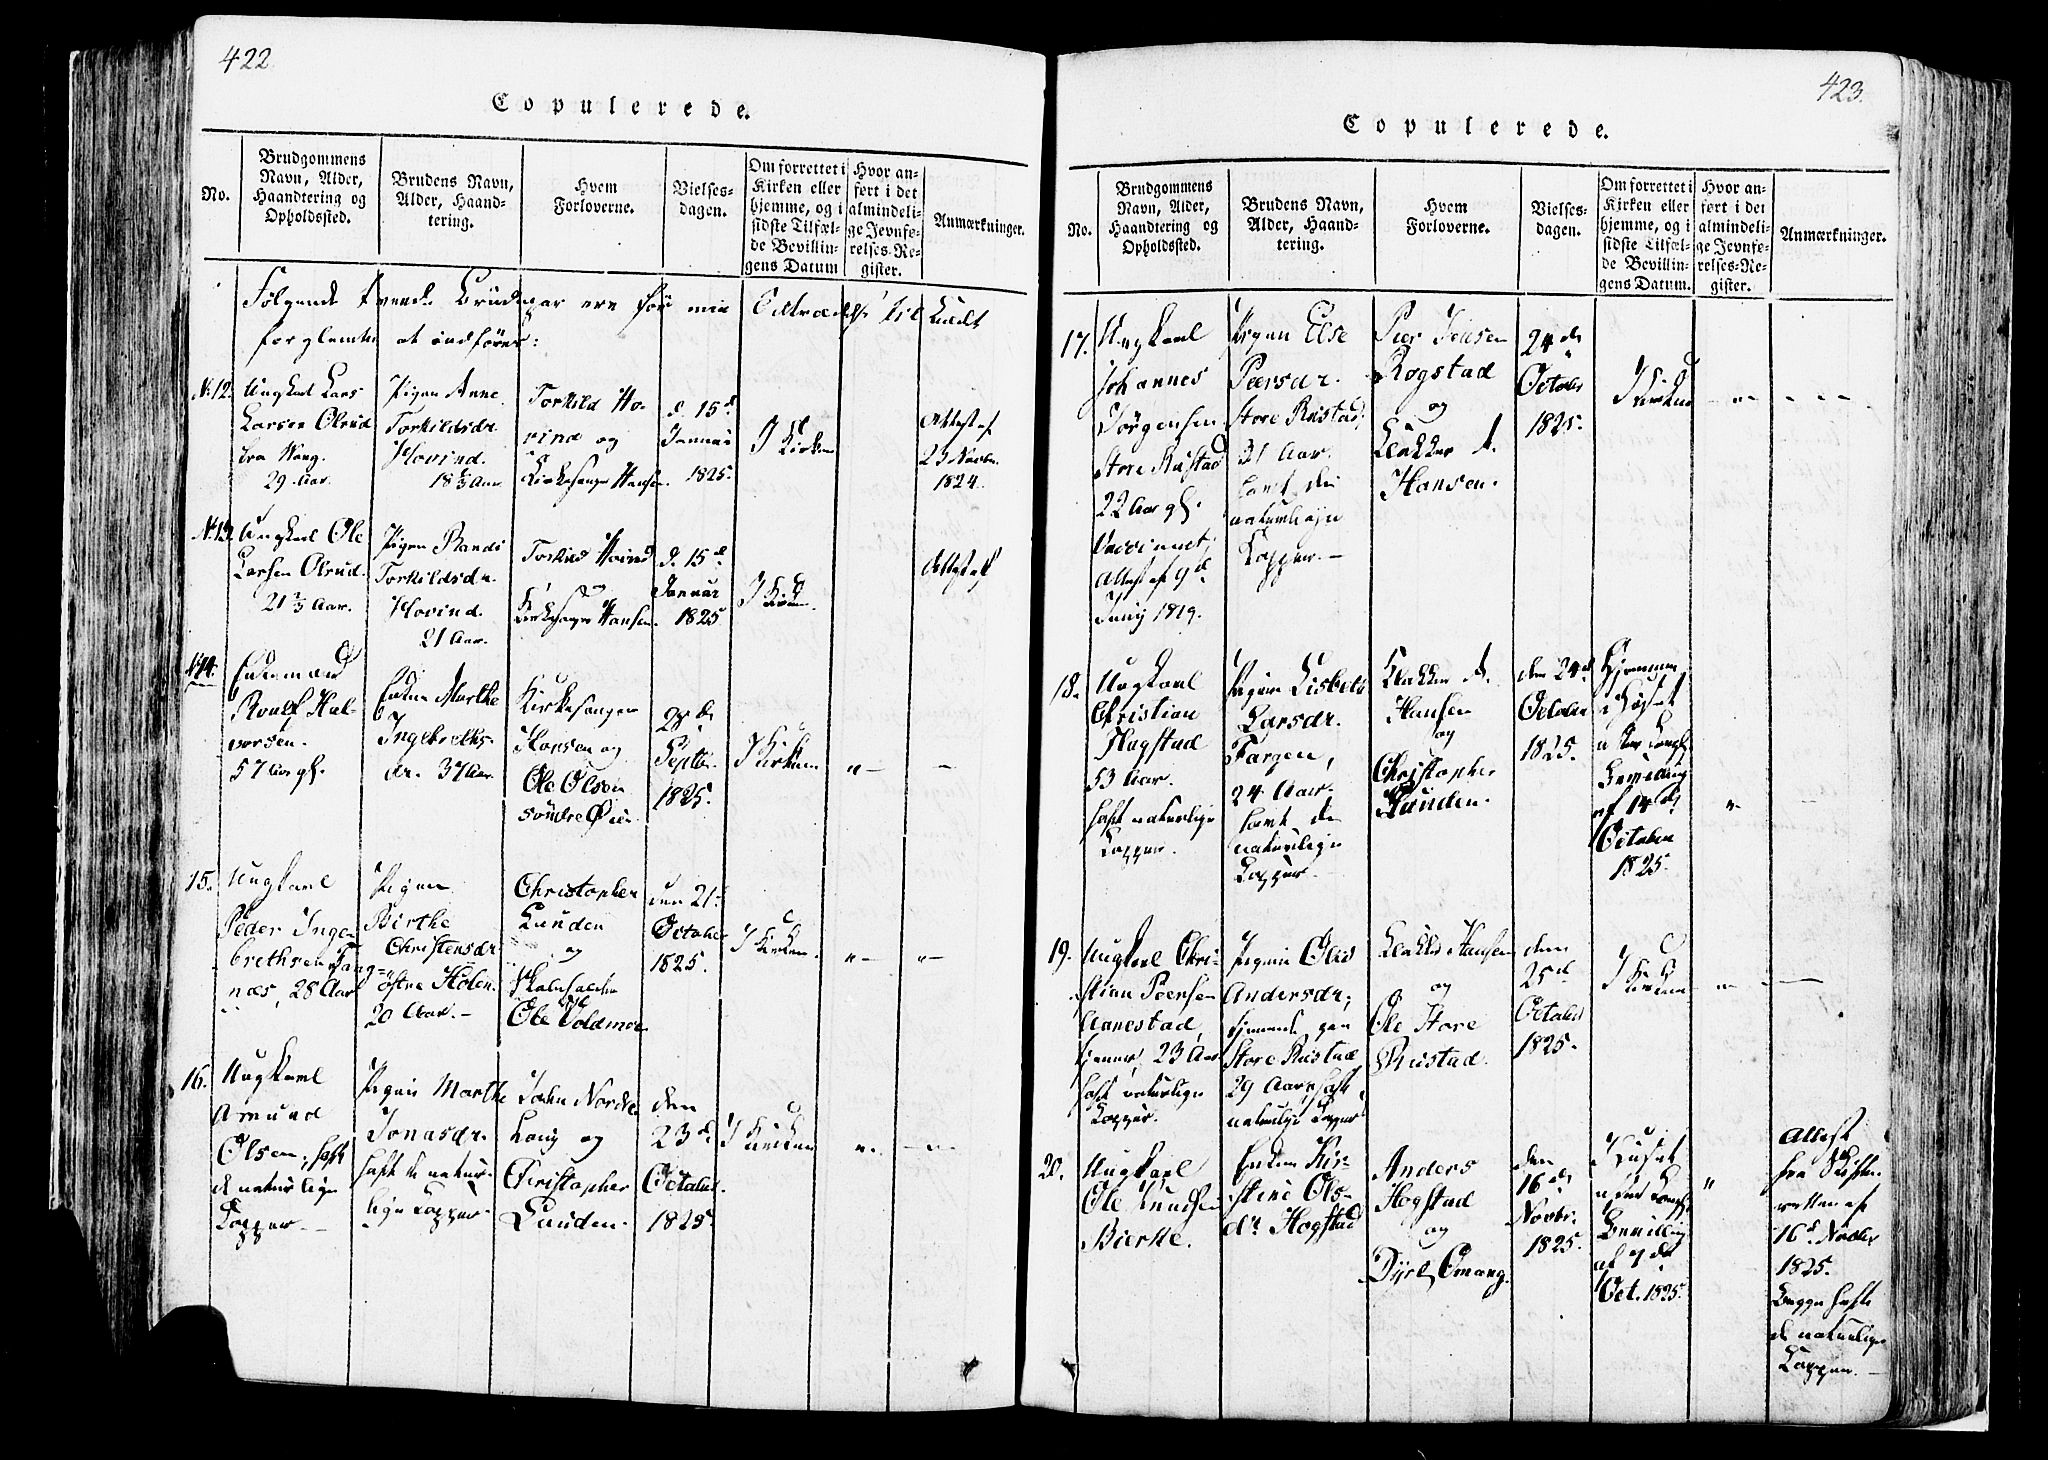 422
Copulerede.
No.
Brudgommens
Navn, Alder,
Haandtering og
Opholdssted.
Brudens Navn,
Alder, Haand-
tering.
Hvem
Forloverne.
Vielses-
dagen.
Om forrettet i
Kirken eller
hjemme, og i
sidste Tilfæl-
de Bevillin-
gens Datum
Hvor an-
ført i det
almindeli-
ge Jevnfø-
relses-Re-
gister.
Anmærkninger.
Følgende tvende Brudepar ere før min
forglemte at indføres:
No. 12.
Ungkarl Lars
Larsen Olrud
29 Aar.
Pigen Anne
Torkildsdr.
Hovind.
18 2/3 Aar
Torkild Ho-
vind og
Kirkesanger Hansen.
d. 15d.
Januar
1825.
I Kirken
Attest af
23 Novbr.
1824.
No. 13.
Ungkarl Ole
Larsen Olrud.
21 2/3 Aar.
Pigen Randi
Torkildsdr.
Hovind.
21 Aar.
Torkild Hovind
og
Kirkesanger Hansen.
d. 15d.
Januar
1825
I Kirken.
Attest af
No. 14.
Enkemand
Roulf Hal-
vorsen.
57 Aar gl.
Enken Marthe
Ingebreths-
dr. 37 Aar
Kirkesanger
Hansen og
Ole Olsen
søndre Øien
28de
Septbr.
1825.
I Kirken
" —
—
15.
Ungkarl
Peder Inge-
brethsen Tang-
næs, 28 Aar
Pigen
Birthe
Christensdr.
østre Holen.
20 Aar. —
Christopher
Lunden
og
Skoleholder
Ole Voldmoe
den 21.
October
1825.
I Kirken.
" —
" —
16.
Ungkarl
Amund
Olsen, haft
de naturlige
Kopper. —
Pigen Marthe
Jonasdr.
haft de natur-
lige Kopper.
John Nordre
og
Christopher
Lunden.
den
23d.
October
1825.
I Kirken
" —
— " —
423.
Copulerede.
No.
Brudgommens
Navn, Alder,
Haandtering og
Opholdssted.
Brudens Navn,
Alder, Haand-
tering.
Hvem
Forloverne.
Vielses-
dagen.
Om forrettet i
Kirken eller
hjemme, og i
sidste Tilfæl-
de Bevillin-
gens Datum.
Hvor an-
ført i det
almindeli-
ge Jevnfø-
relses-Re-
gister.
Anmærkninger.
17.
Ungkarl
Johannes
Jørgensen
Store Rustad
22 Aar gl.
Vaccineret,
Attest af 9d.
Junij 1819.
Pigen Else
Peersdr.
Store Rustad,
31 Aar.
havt de
naturlige
Kopper. —
Peer Jensen
Rogstad
og
Klokker A.
Hansen.
24de
October
1825.
I Kirken
18.
Ungkarl
Christian
Hagstad
53 Aar.
haft naturlige
Kopper.
Pigen Lisbeth
Larsdr.
Fargen,
24 Aar.
havt de
naturlige
Kopper. —
Klokker A.
Hansen
og
Christopher
Lunden.
den 24d.
October
1825.
Hjemme,
i Huset
Bevilling
af 14de
October
1825.
"
—
19.
Ungkarl Chri-
stian Peersen
Aanestad,
tjener, 23 Aar
haft naturlige
Kopper.
Pigen Olea
Andersdr.
tjenende paa
Store Rustad
29 Aar, haft
naturlige Kopper
Klokker Hansen
og
Ole Store
Rustad.
den
25d.
October
1825.
I Kirken
20.
Ungkarl
Ole Knudsen
Bierke.
Enken Kir-
stine Ols-
dr. Hogstad
Anders
Hogstad
og
Dyre Omang.
den
16de
Novbr.
1825.
I Huset
Bevilling
af 7de
Oct. 1825.
"
Attest
fra Skifte-
retten af
16d. Novbr
1825.
Begge hafte
de naturlige
Kopper. —